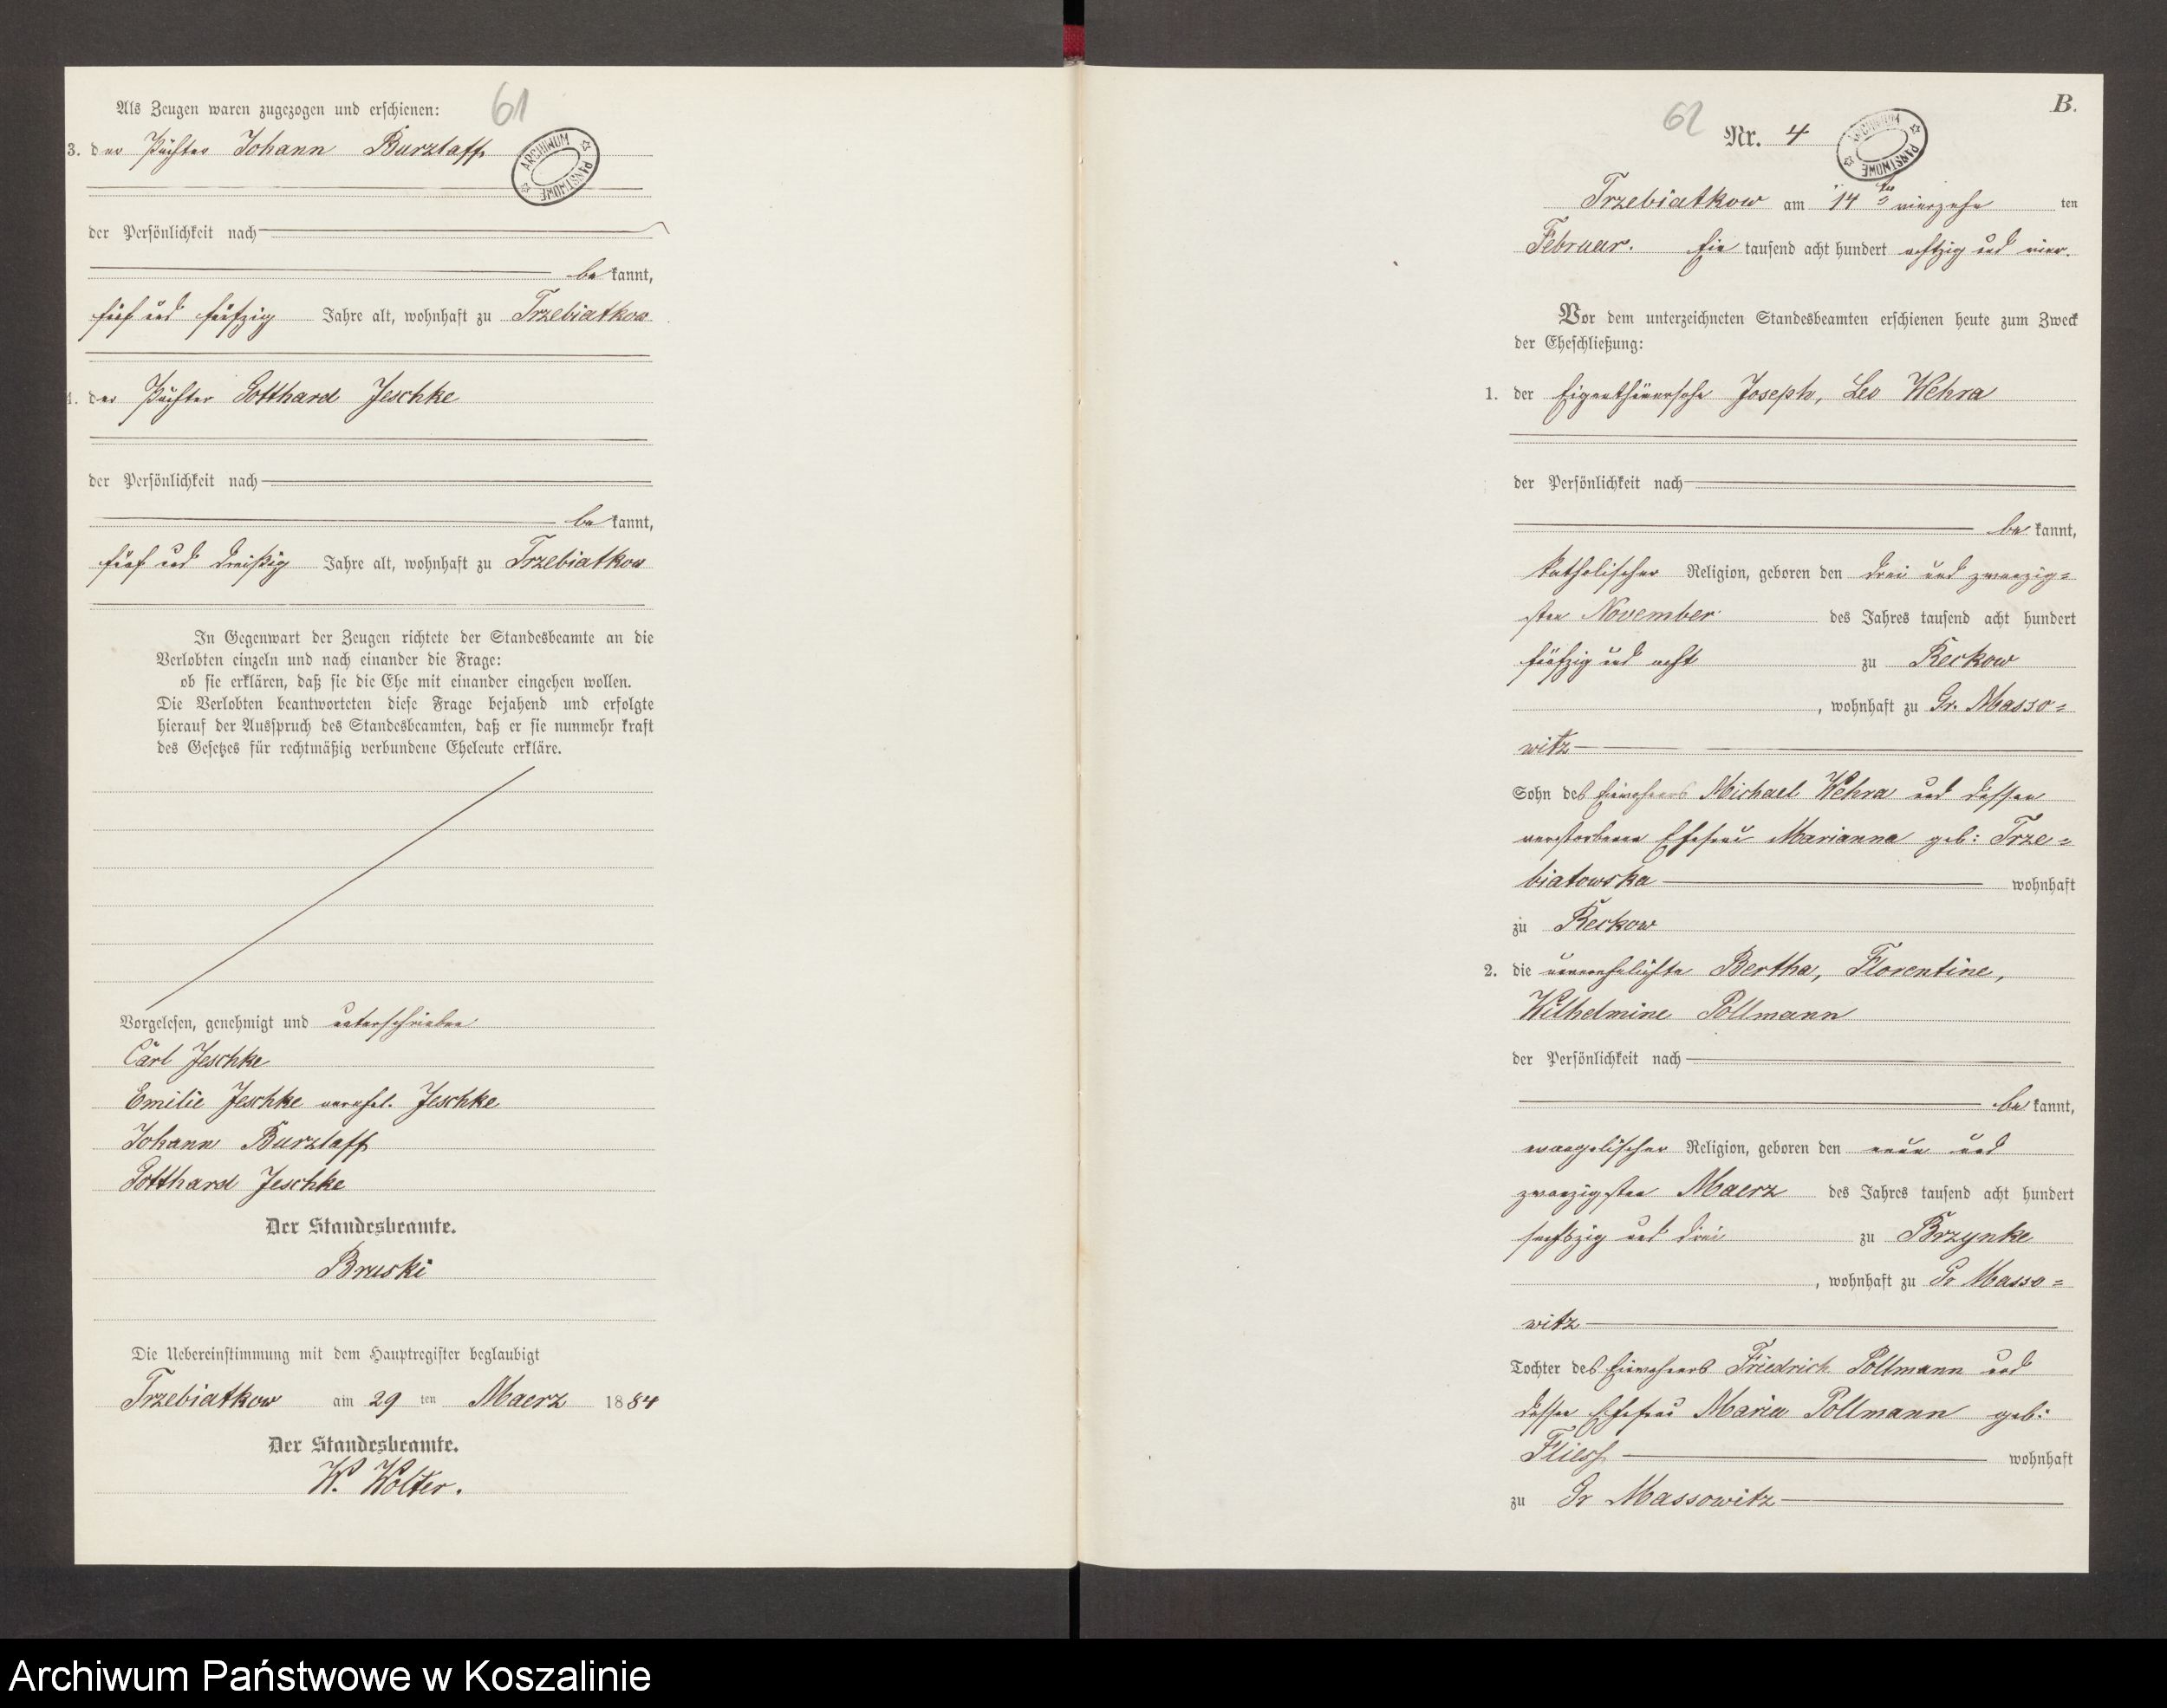 61
Als Zeugen waren zugezogen und erschienen:
3. der Pächter Johann Burzlaff
ARCHIWUM PAŃSTWOWE
der Persönlichkeit nach
be kannt,
fünf und fünfzig Jahre alt, wohnhaft zu Trzebiatkow
4. der Pächter Gotthard Jeschke
der Persönlichkeit nach
be kannt,
fünf und dreißig Jahre alt, wohnhaft zu Trzebiatkow
In Gegenwart der Zeugen richtete der Standesbeamte an die
Verlobten einzeln und nach einander die Frage:
ob sie erklären, daß sie die Ehe mit einander eingehen wollen.
Die Verlobten beantworteten diese Frage bejahend und erfolgte
hierauf der Ausspruch des Standesbeamten, daß er sie nunmehr kraft
des Gesetzes für rechtmäßig verbundene Eheleute erkläre.
Vorgelesen, genehmigt und unterschrieben
Carl Jeschke
Emilie Jeschke verehel. Jeschke
Johann Burzlaff
Gotthard Jeschke
Der Standesbeamte.
Bruski
Die Uebereinstimmung mit dem Hauptregister beglaubigt
Trzebiatkow am 29 ten Maerz 1884
Der Standesbeamte.
W. Wolter.
B.
62
Nr. 4
ARCHIWUM PAŃSTWOWE
Trzebiatkow am 14 vierzehn ten
Februar. Ein tausend acht hundert achtzig und vier.
Vor dem unterzeichneten Standesbeamten erschienen heute zum Zweck
der Eheschließung:
1. der Eigenthümersohn Joseph, Leo Wehra
der Persönlichkeit nach
be kannt,
katholischer Religion, geboren den drei und zwanzig=
sten November des Jahres tausend acht hundert
fünfzig und acht zu Reckow
, wohnhaft zu Gr. Masso=
witz
Sohn des Einwohners Michael Wehra und dessen
verstorbenen Ehefrau Marianna geb: Trze=
biatowska wohnhaft
zu Reckow
2. die unverehelichte Bertha, Florentine,
Wilhelmine Pollmann
der Persönlichkeit nach
be kannt,
evangelischer Religion, geboren den neun und
zwanzigsten Maerz des Jahres tausend acht hundert
sechszig und drei zu Brzynke
, wohnhaft zu Gr Masso=
witz
Tochter des Einwohners Friedrich Pollmann und
dessen Ehefrau Maria Pollmann geb:
Fliess wohnhaft
zu Gr Massowitz
Archiwum Państwowe w Koszalinie